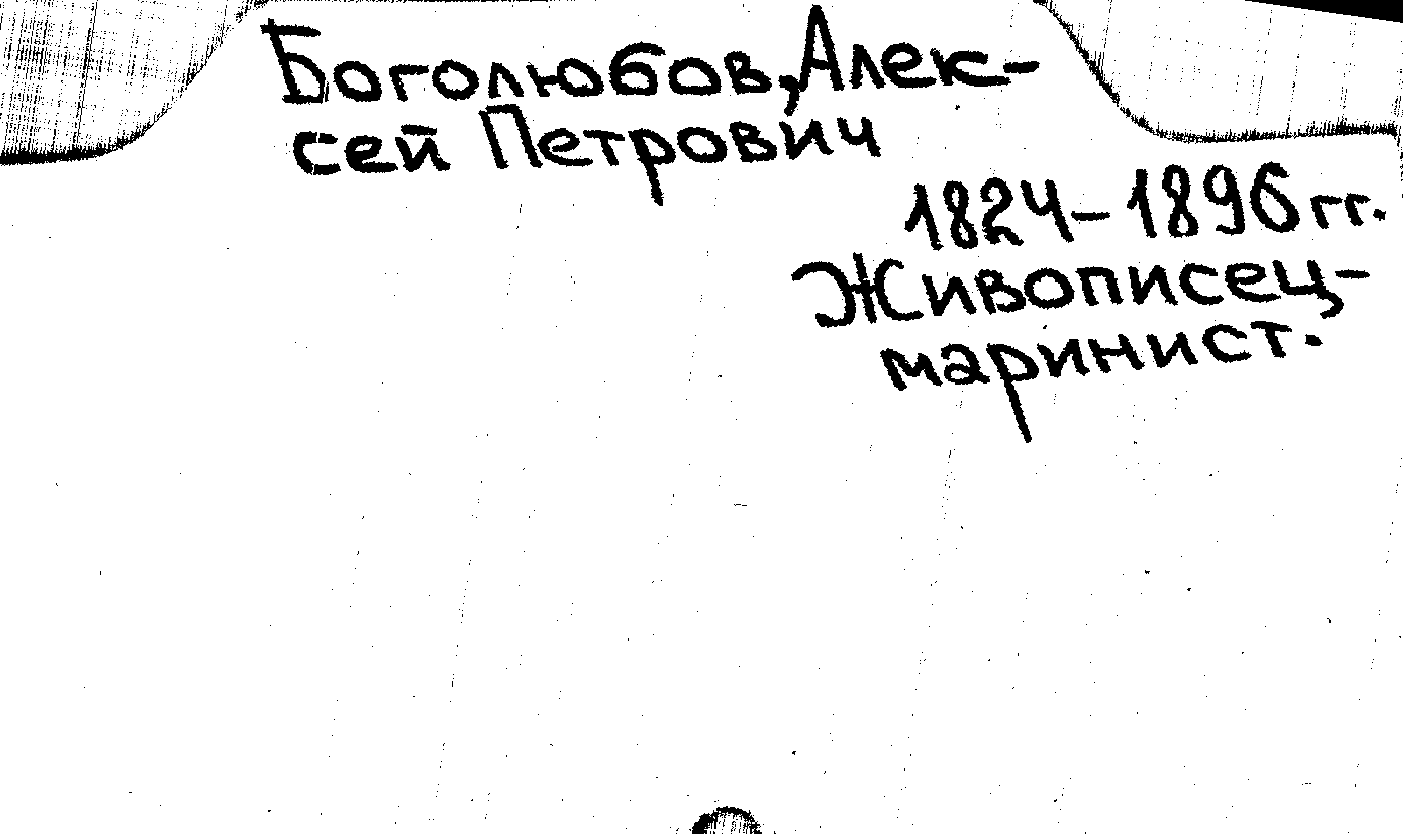 Боголюбов, Алек-
сей Петрович
1824-1896 гг.
Живописец-
маринист.